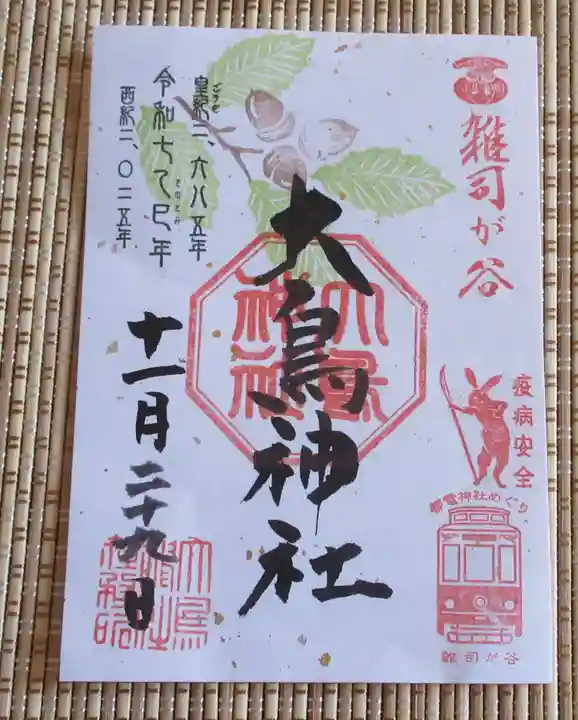 雑司が谷
疫病安全
御電神社めぐり
雑司が谷
大鳥神社
大鳥
神社
皇紀二、六八五年
令和七乙巳年
きのとみ
西紀二、〇二五年
十一月二十九日